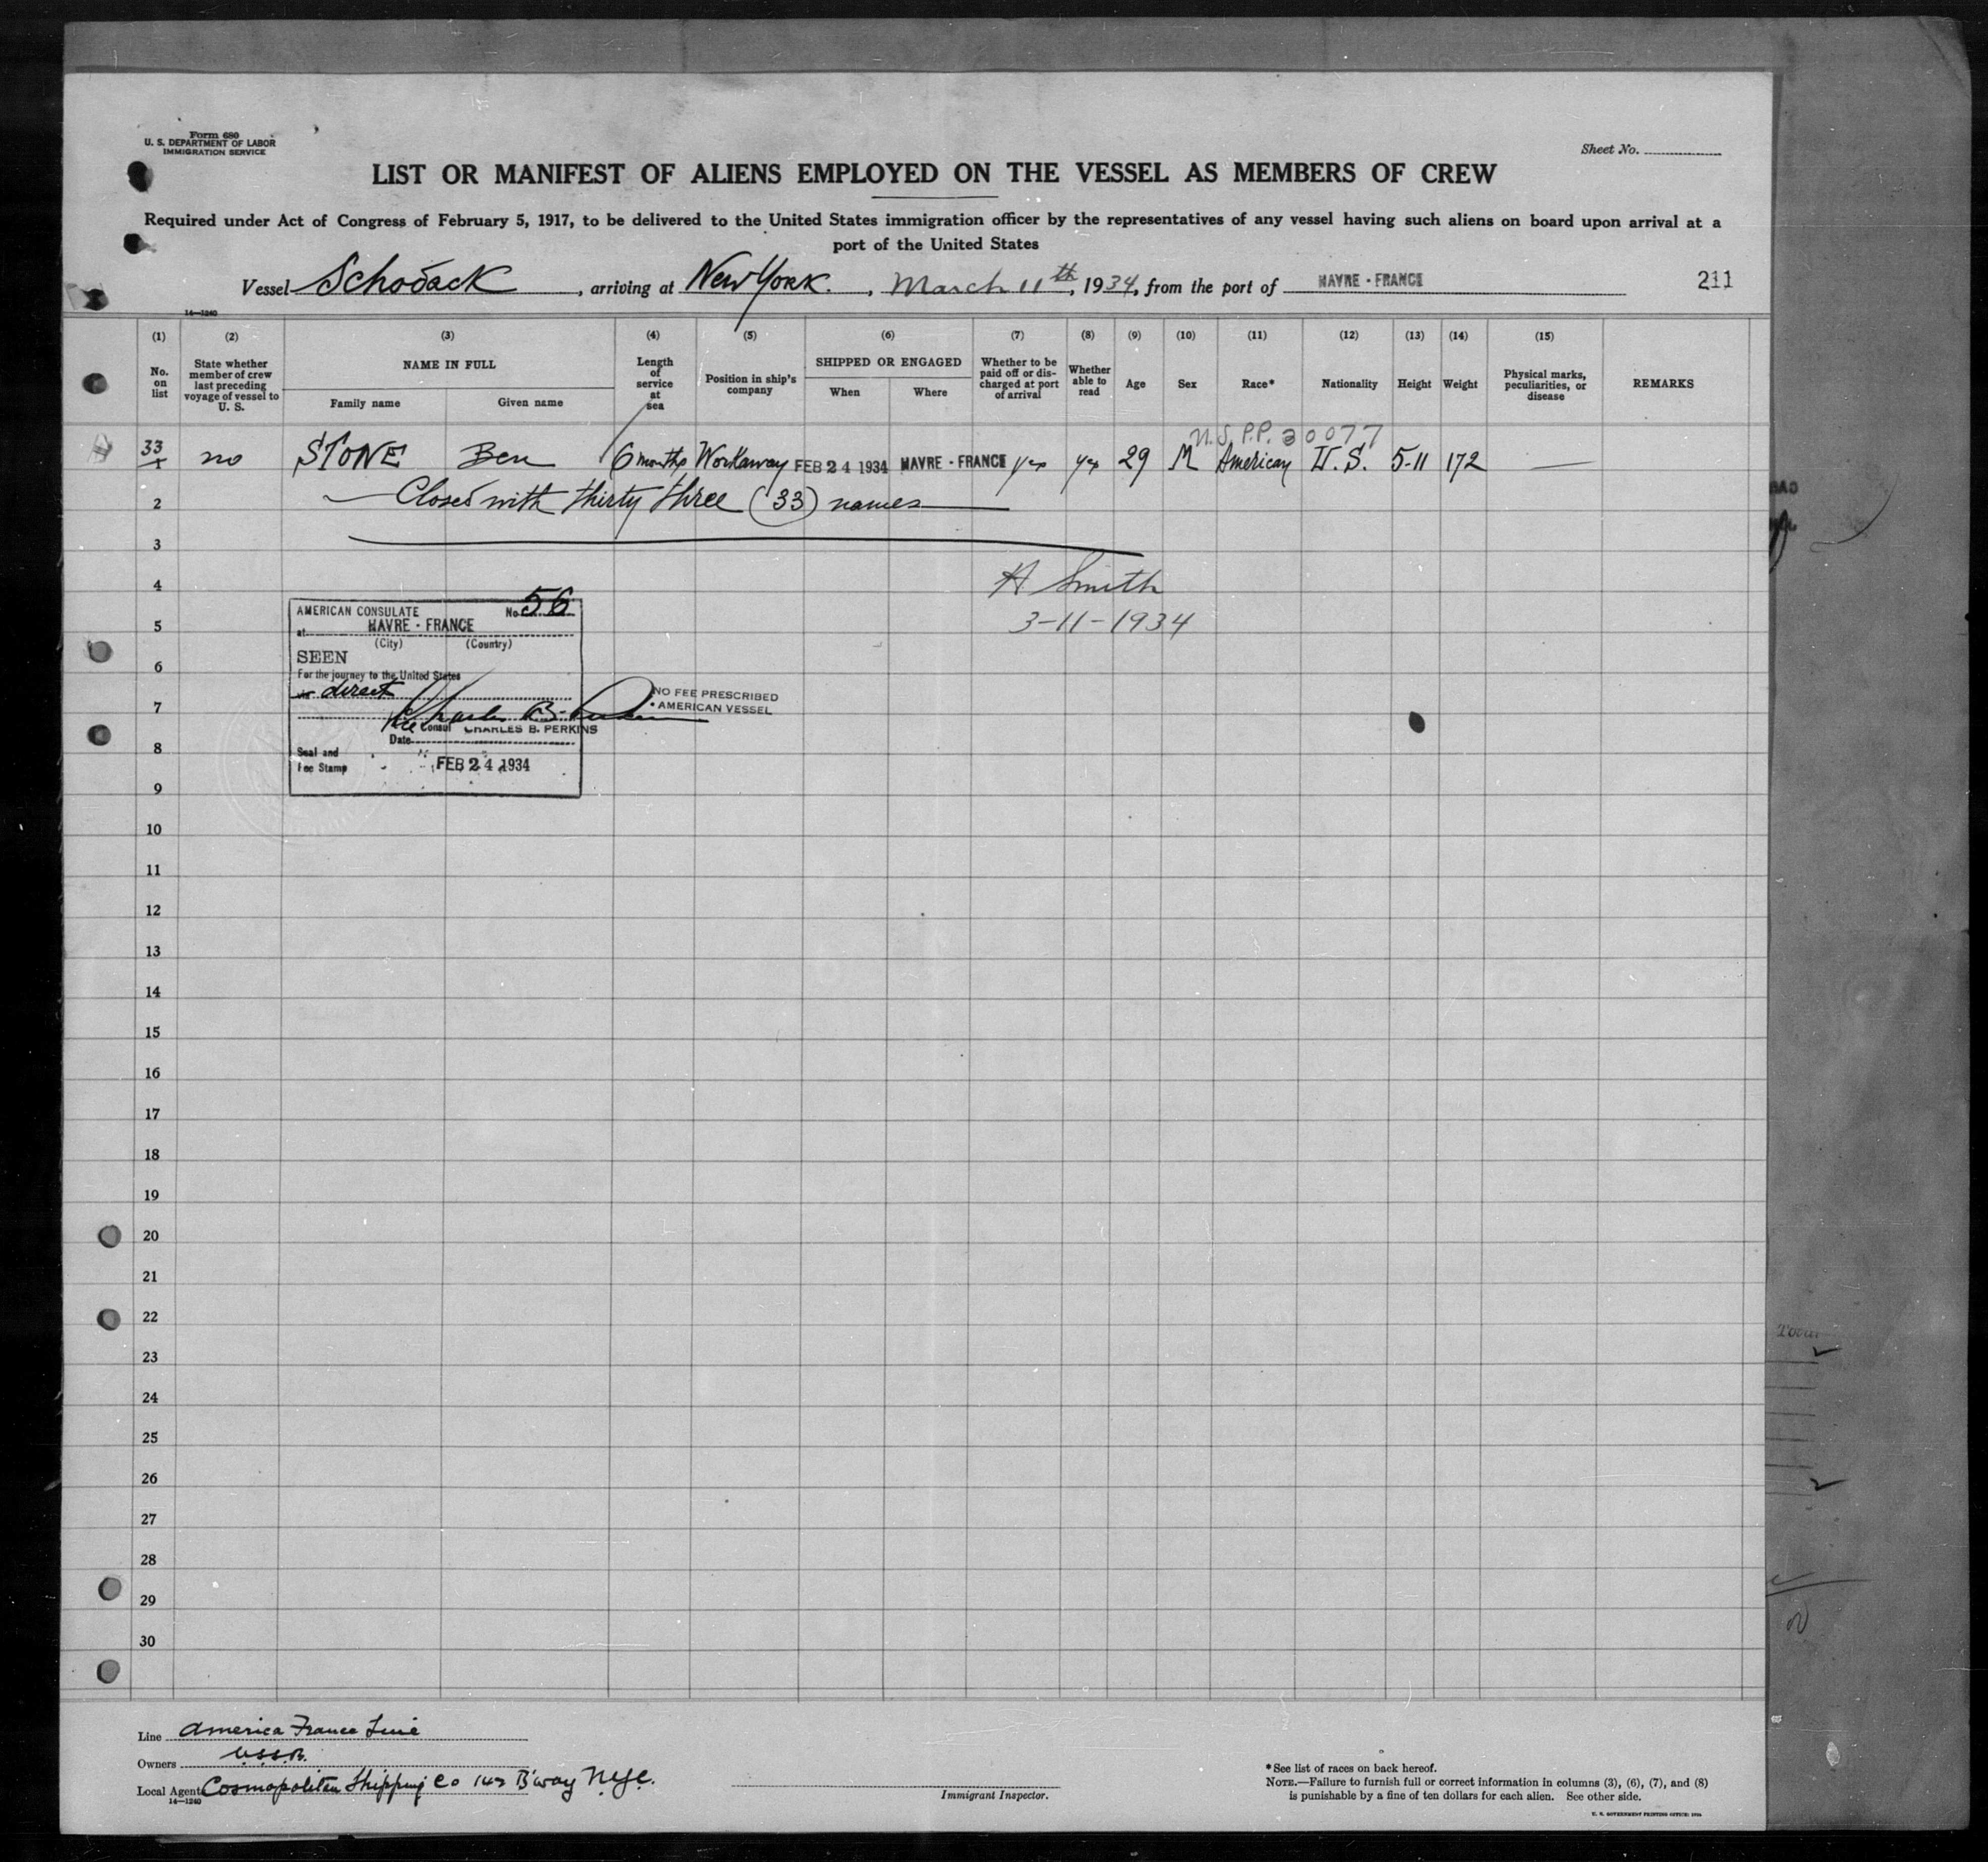 Form 680
U. S. DEPARTMENT OF LABOR
IMMIGRATION SERVICE
Sheet No.
LIST OR MANIFEST OF ALIENS EMPLOYED ON THE VESSEL AS MEMBERS OF CREW
Required under Act of Congress of February 5, 1917, to be delivered to the United States immigration officer by the representatives of any vessel having such aliens on board upon arrival at a
port of the United States
Vessel Schodack, arriving at New York., March 11th, 1934, from the port of HAVRE - FRANCE
211
14—1240
(1) No. on list
(2) State whether member of crew last preceding voyage of vessel to U. S.
(3) NAME IN FULL Family name Given name
(4) Length of service at sea
(5) Position in ship's company
(6) SHIPPED OR ENGAGED When Where
(7) Whether to be paid off or discharged at port of arrival
(8) Whether able to read
(9) Age
(10) Sex
(11) Race*
(12) Nationality
(13) Height
(14) Weight
(15) Physical marks, peculiarities, or disease
REMARKS
U.S. P.P. 30077
33 1 no STONE Ben 6 months Workaway FEB 24 1934 HAVRE - FRANCE yes yes 29 M American U.S. 5-11 172 —
2 Closed with thirty three (33) names
3
4 H Smith
3-11-1934
AMERICAN CONSULATE No. 56
5 at HAVRE - FRANCE
(City) (Country)
SEEN
6
For the journey to the United States
direct
7 NO FEE PRESCRIBED
AMERICAN VESSEL
Charles B. Perkins
Vice Consul CHARLES B. PERKINS
Date
8 Seal and
Fee Stamp FEB 24 1934
9
10
11
12
13
14
15
16
17
18
19
20
21
22
23
24
25
26
27
28
29
30
Line America France Line
Owners U.S.S.B.
Local Agents Cosmopolitan Shipping Co 142 B'way N.Y.C.
14—1240
Immigrant Inspector.
*See list of races on back hereof.
NOTE.—Failure to furnish full or correct information in columns (3), (6), (7), and (8)
is punishable by a fine of ten dollars for each alien. See other side.